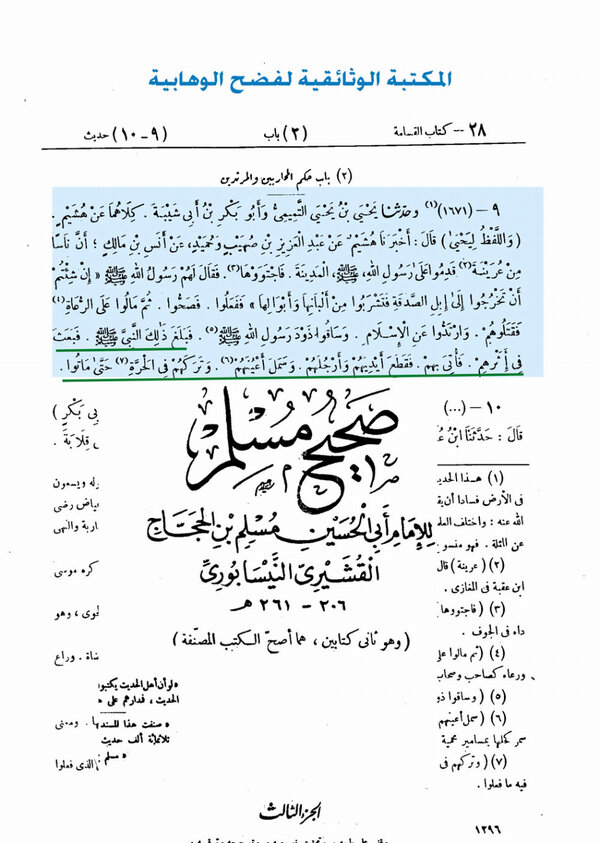 المكتبة الوثائقية لفضح الوهابية
٢٨ – كتاب القسامة (٢) باب (٩-١٠) حديث
(٢) باب حكم المحاربين والمرتدين
٩ – (١٦٧١)(١) وحَدَّثَنَا يَحْيَى بْنُ يَحْيَى التَّمِيمِيُّ وَأَبُو بَكْرِ بْنُ أَبِي شَيْبَةَ . كِلَاهُمَا عَنْ هُشَيْمٍ .
(وَاللَّفْظُ لِيَحْيَى) قَالَ : أَخْبَرَنَا هُشَيْمٌ عَنْ عَبْدِ الْعَزِيزِ بْنِ صُهَيْبٍ وَحُمَيْدٍ، عَنْ أَنَسِ بْنِ مَالِكٍ ؛ أَنَّ نَاسًا
مِنْ عُرَيْنَةَ(٢) قَدِمُوا عَلَى رَسُولِ اللهِ، ﷺ، الْمَدِينَةَ . فَاجْتَوَوْهَا(٣). فَقَالَ لَهُمْ رَسُولُ اللهِ ﷺ « إِنْ شِئْتُمْ
أَنْ تَخْرُجُوا إِلَى إِبِلِ الصَّدَقَةِ فَتَشْرَبُوا مِنْ أَلْبَانِهَا وَأَبْوَالِهَا » فَفَعَلُوا . فَصَحُّوا . ثُمَّ مَالُوا عَلَى الرُّعَاةِ(٤)
فَقَتَلُوهُمْ . وَارْتَدُّوا عَنِ الْإِسْلَامِ . وَسَاقُوا ذَوْدَ رَسُولِ اللهِ ﷺ(٥). فَبَلَغَ ذٰلِكَ النَّبِيَّ ﷺ . فَبَعَثَ
فِي أَثَرِهِمْ . فَأُتِيَ بِهِمْ . فَقَطَعَ أَيْدِيَهُمْ وَأَرْجُلَهُمْ . وَسَمَلَ أَعْيُنَهُمْ(٦) . وَتَرَكَهُمْ فِي الْحَرَّةِ(٧) حَتَّى مَاتُوا .
١٠ – (...) بِي بَكْرٍ)
قَالَ : حَدَّثَنَا ابْنُ قِلَابَةَ .
صحيح مسلم
للإمام أبي الحسين مسلم بن الحجاج
القشيري النيسابوري
٢٠٦ - ٢٦١ هـ
(وهو ثاني كتابين ، هما أصحّ الكتب المصنّفة)
(١) (هذا الحدي
في الأرض فسادا أن ي
الله عنه : واختلف العلم
عن المثلة . فهو منسو
(٢) (عرينة) قال
ابن عقبة في المغازي .
(٣) (فاجتووها
داء في الجوف .
(٤) (ثم مالوا على
ورعاء كصاحب وصحاب
(٥) (وساقوا ذو
(٦) (سمل أعينهم
سمر كحلها بمسامير محمية
(٧) (وتركهم في
فيه ما فعلوا .
رله ويسعون
ياض رضى
اربة والنهى
كره موسى
لوى ، وهو
ناة . وراع
ها . ومعنى
الذى فعلوا
لو أن أهل الحديث يكتبو
الحديث ، فمدارهم على
« صنفت هذا المسند
ثلاثمائة ألف حديث
« مسلم
الجزء الثالث
١٢٩٦